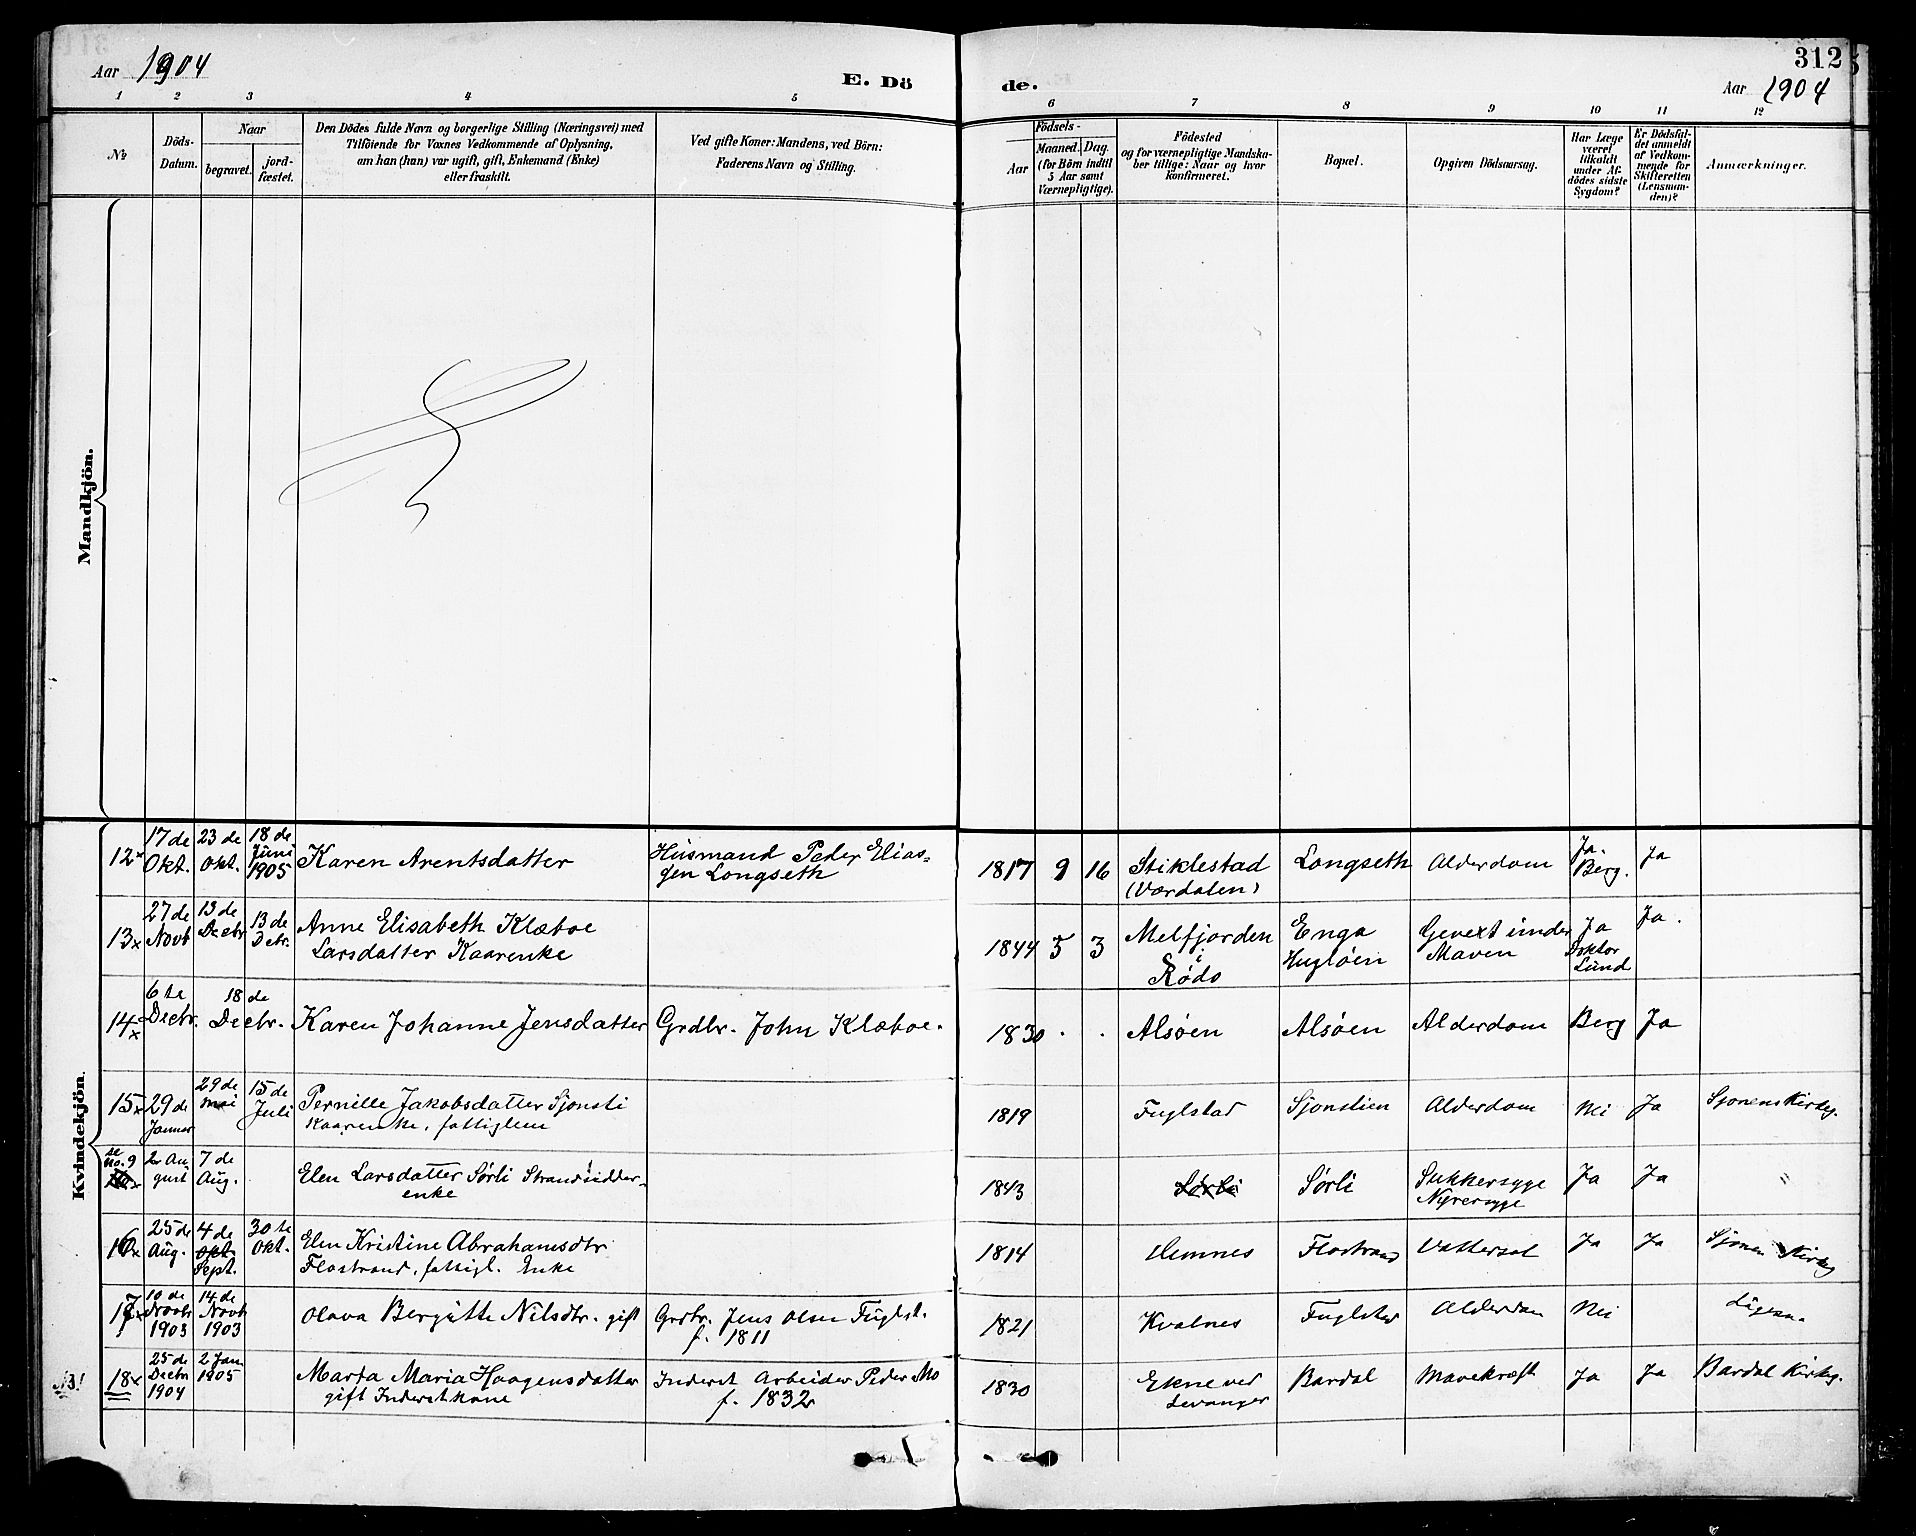 Aar 1904
E. Dö
de.
312
Aar 1904
1 2 3 4 5 6 7 8 9 10 11 12
No
Döds-
Datum.
Naar
begravet.
jord-
fæstet.
Den Dödes fulde Navn og borgerlige Stilling (Næringsvei) med
Tilföiende for Voxnes Vedkommende af Oplysning,
om han (hun) var ugift, gift, Enkemand (Enke)
eller fraskilt.
Ved gifte Koner: Mandens, ved Börn:
Faderens Navn og Stilling.
Födsels-
Aar
Maaned. Dag.
(for Börn indtil
5 Aar samt
Værnepligtige).
Födested
og for værnepligtige Mandska-
ber tillige: Naar og hvor
konfirmeret.
Bopæl.
Opgiven Dödsaarsag.
Har Læge
været
tilkaldt
under Af-
dödes sidste
Sygdom?
Er Dödsfal-
det anmeldt
af Vedkom-
mende for
Skifteretten
(Lensman-
den)?
Anmærkninger.
Mandkjön.
Kvindekjön.
12x
17 de
Okt.
23 de
Okt.
18 de
Juni
1905
Karen Arentsdatter
Husmand Peder Elias-
sen Longseth
1817 9 16
Stiklestad
(Værdalen)
Longseth
Alderdom
Ja.
Berg.
Ja
13x
27 de
Novb
13 de
Decbr
13 de
Debr.
Anne Elisabeth Klæboe
Larsdatter Kaarenke
1844 5 3
Melfjorden
i
Rødø
Enga
Hugløen
Gevext under
Maven
Ja
Doktor
Lund
Ja.
14x
6 te
Decbr.
18 de
Decbr.
Karen Johanne Jensdatter
Grdbr. John Klæboe.
1830 . .
Alsøen
Alsøen
Alderdom
Berg
Ja
15x
29 de
Januar
29 de
Mai
15 de
Juli
Pernille Jakobsdatter Sjonsti
Kaarenke, fattiglem
1819
Fuglstad
Sjonstien
Alderdom
Nei
Ja
Sjonens Kirkeg.
se
No. 9
2 Au-
gust
7 de
Aug.
Elen Larsdatter Sørli Strandsidder-
enke
1843
Sørli
Sørli
Sukkersyge
Nyresyge
Ja
Ja
"
16x
25 de
Aug.
4 de
Okt.
Sept.
30 te
Okt.
Elen Kristine Abrahamsdtr
Flostrand, fattigl. Enke
1814
Hemnes
Flostrand
Vattersot
Ja
Ja
Sjonen Kirkeg
17x
10 de
Novbr
1903
14 de
Novb
1903
Olava Bergitte Nilsdtr. gift
Grdbr. Jens Olsen Fuglst.
f. 1811
1821
Kvalnes
Fuglstad
Alderdom
Nei
18x
25 de
Decbr
1904
2 Jan
1905
Marta Maria Haagensdatter
gift Inderstkone
Inderst Arbeider Peder Mo
f. 1832
1830
Ekne ved
Levanger
Bardal
Mavekræft
Ja
Ja
Bardal Kirkeg.